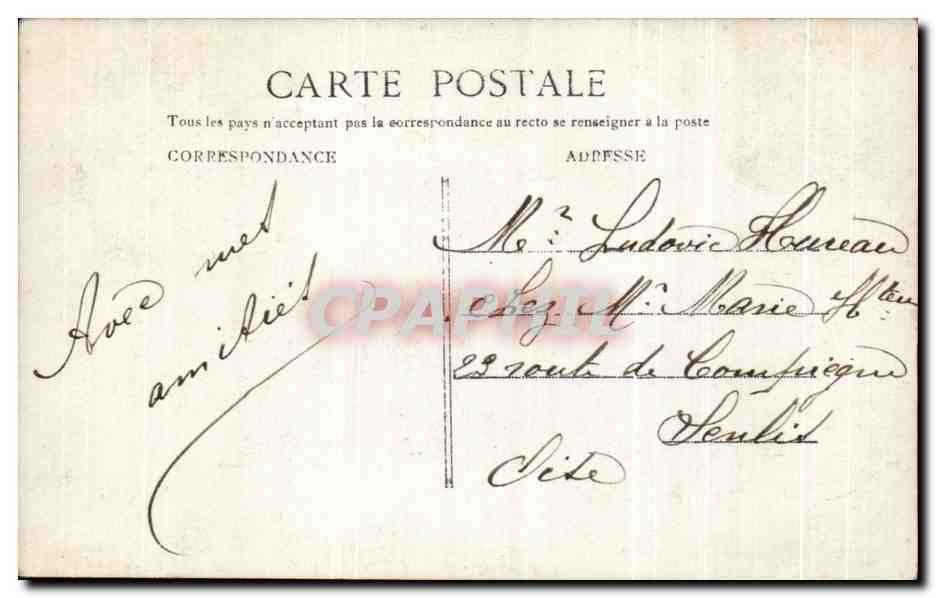 CARTE POSTALE
Tous les pays n'acceptant pas la correspondance au recto se renseigner a la poste
CORRESPONDANCE
ADRESSE
Avec mes
amitiés
Mr Ludovic Hureau
chez Mr Marie
22 route de Compiegne
Senlis
Oise
CPAPHIL